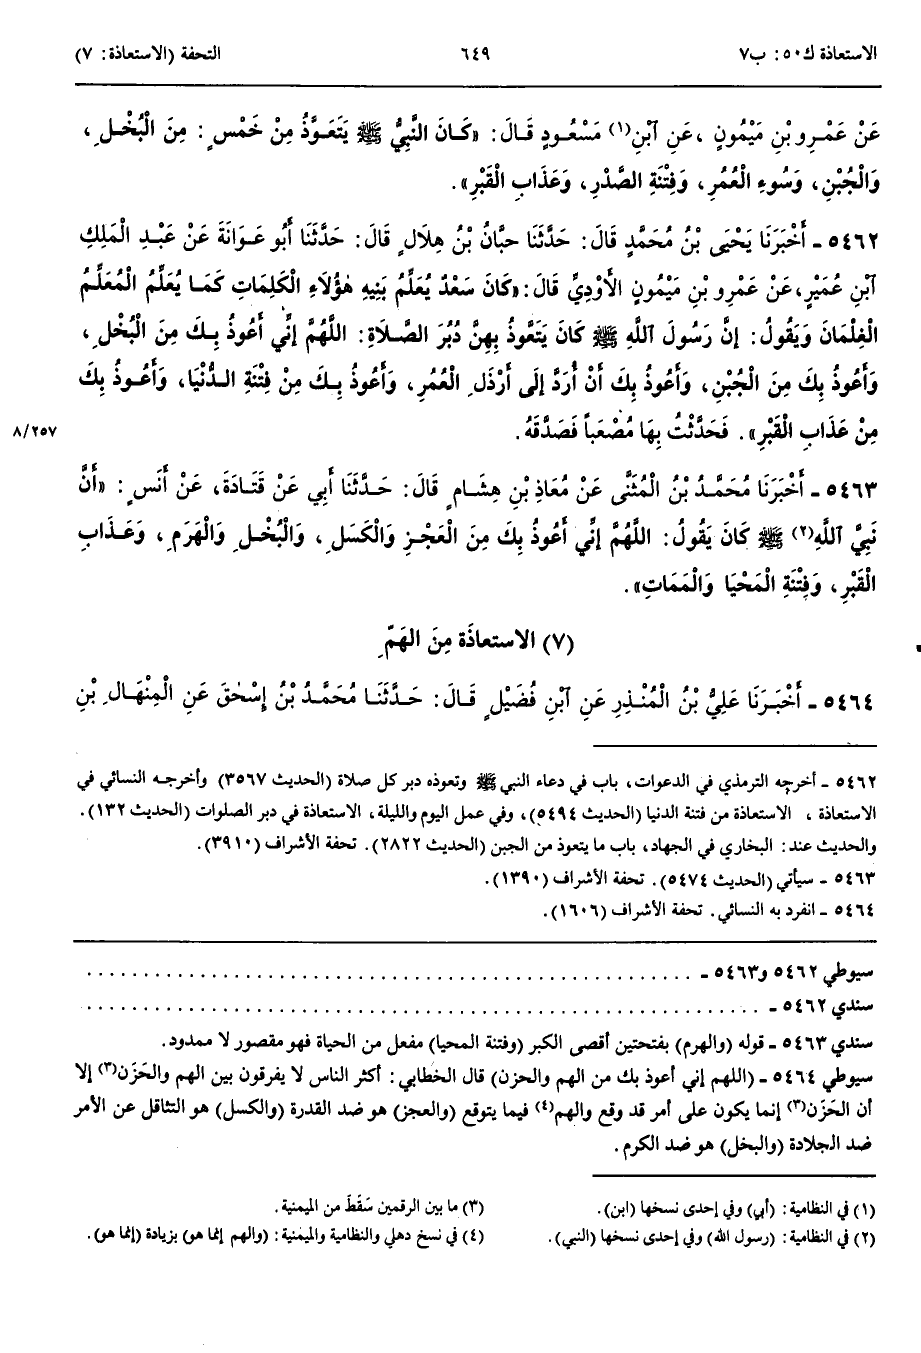 الاستعاذة ك٥٠: ب٧ ٦٤٩ التحفة (الاستعاذة: ٧)
عَنْ عَمْرِو بْنِ مَيْمُونٍ، عَنِ ٱبْنِ(١) مَسْعُودٍ قَالَ: «كَانَ النَّبِيُّ ﷺ يَتَعَوَّذُ مِنْ خَمْسٍ: مِنَ الْبُخْلِ،
وَالْجُبْنِ، وَسُوءِ الْعُمُرِ، وَفِتْنَةِ الصَّدْرِ، وَعَذَابِ الْقَبْرِ».
٥٤٦٢ ـ أَخْبَرَنَا يَحْيَى بْنُ مُحَمَّدٍ قَالَ: حَدَّثَنَا حَبَّانُ بْنُ هِلَالٍ قَالَ: حَدَّثَنَا أَبُو عَوَانَةَ عَنْ عَبْدِ الْمَلِكِ
ٱبْنِ عُمَيْرٍ، عَنْ عَمْرِو بْنِ مَيْمُونٍ الأَوْدِيِّ قَالَ: «كَانَ سَعْدٌ يُعَلِّمُ بَنِيهِ هٰؤُلَاءِ الْكَلِمَاتِ كَمَا يُعَلِّمُ الْمُعَلِّمُ
الْغِلْمَانَ وَيَقُولُ: إِنَّ رَسُولَ ٱللَّهِ ﷺ كَانَ يَتَعَوَّذُ بِهِنَّ دُبُرَ الصَّلَاةِ: اللَّهُمَّ إِنِّي أَعُوذُ بِكَ مِنَ الْبُخْلِ،
وَأَعُوذُ بِكَ مِنَ الْجُبْنِ، وَأَعُوذُ بِكَ أَنْ أُرَدَّ إِلَى أَرْذَلِ الْعُمُرِ، وَأَعُوذُ بِكَ مِنْ فِتْنَةِ الدُّنْيَا، وَأَعُوذُ بِكَ
مِنْ عَذَابِ الْقَبْرِ». فَحَدَّثْتُ بِهَا مُصْعَباً فَصَدَّقَهُ. ٨/٢٥٧
٥٤٦٣ ـ أَخْبَرَنَا مُحَمَّدُ بْنُ الْمُثَنَّى عَنْ مُعَاذِ بْنِ هِشَامٍ قَالَ: حَدَّثَنَا أَبِي عَنْ قَتَادَةَ، عَنْ أَنَسٍ: «أَنَّ
نَبِيَّ ٱللَّهِ(٢) ﷺ كَانَ يَقُولُ: اللَّهُمَّ إِنِّي أَعُوذُ بِكَ مِنَ الْعَجْزِ وَالْكَسَلِ، وَالْبُخْلِ وَالْهَرَمِ، وَعَذَابِ
الْقَبْرِ، وَفِتْنَةِ الْمَحْيَا وَالْمَمَاتِ».
(٧) الاستعاذَة مِنَ الهَمِّ
٥٤٦٤ ـ أَخْبَرَنَا عَلِيُّ بْنُ الْمُنْذِرِ عَنِ ٱبْنِ فُضَيْلٍ قَالَ: حَدَّثَنَا مُحَمَّدُ بْنُ إِسْحٰقَ عَنِ الْمِنْهَالِ بْنِ
٥٤٦٢ ـ أخرجه الترمذي في الدعوات، باب في دعاء النبي ﷺ وتعوذه دبر كل صلاة (الحديث ٣٥٦٧) وأخرجه النسائي في
الاستعاذة، الاستعاذة من فتنة الدنيا (الحديث ٥٤٩٤)، وفي عمل اليوم والليلة، الاستعاذة في دبر الصلوات (الحديث ١٣٢).
والحديث عند: البخاري في الجهاد، باب ما يتعوذ من الجبن (الحديث ٢٨٢٢). تحفة الأشراف (٣٩١٠).
٥٤٦٣ ـ سيأتي (الحديث ٥٤٧٤). تحفة الأشراف (١٣٩٠).
٥٤٦٤ ـ انفرد به النسائي. تحفة الأشراف (١٦٠٦).
سيوطي ٥٤٦٢ و٥٤٦٣ ـ ......................................................
سندي ٥٤٦٢ ـ ............................................................
سندي ٥٤٦٣ ـ قوله (والهرم) بفتحتين أقصى الكبر (وفتنة المحيا) مفعل من الحياة فهو مقصور لا ممدود.
سيوطي ٥٤٦٤ ـ (اللهم إني أعوذ بك من الهم والحزن) قال الخطابي: أكثر الناس لا يفرقون بين الهم والحَزَن(٣) إلا
أن الحَزَن(٣) إنما يكون على أمر قد وقع والهم(٤) فيما يتوقع (والعجز) هو ضد القدرة (والكسل) هو التثاقل عن الأمر
ضد الجلادة (والبخل) هو ضد الكرم.
(١) في النظامية: (أبي) وفي إحدى نسخها (ابن).
(٢) في النظامية: (رسول الله) وفي إحدى نسخها (النبي).
(٣) ما بين الرقمين سَقَطَ من الميمنية.
(٤) في نسخ دهلي والنظامية والميمنية: (والهم إنما هو) بزيادة (إنما هو).